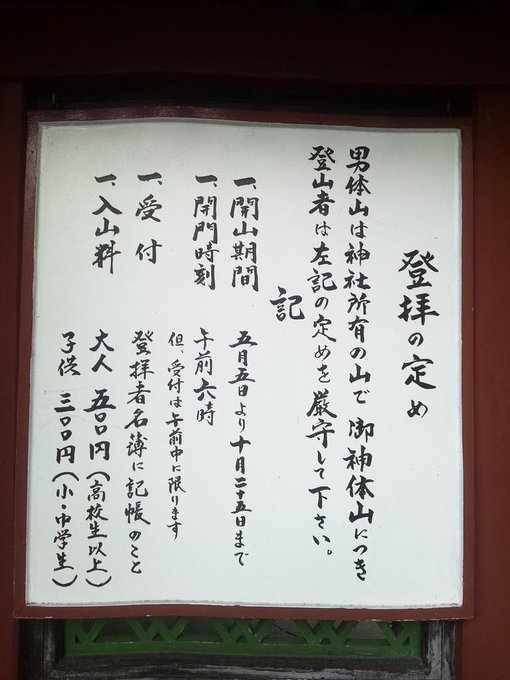 登拝の定め
男体山は神社所有の山で 御神体山につき
登山者は左記の定めを厳守して下さい。
記
一、開山期間 五月五日より十月二十五日まで
一、開門時刻 午前六時
但、受付は午前中に限ります
一、受付 登拝者名簿に記帳のこと
一、入山料 大人 五〇〇円(高校生以上)
子供 三〇〇円(小・中学生)